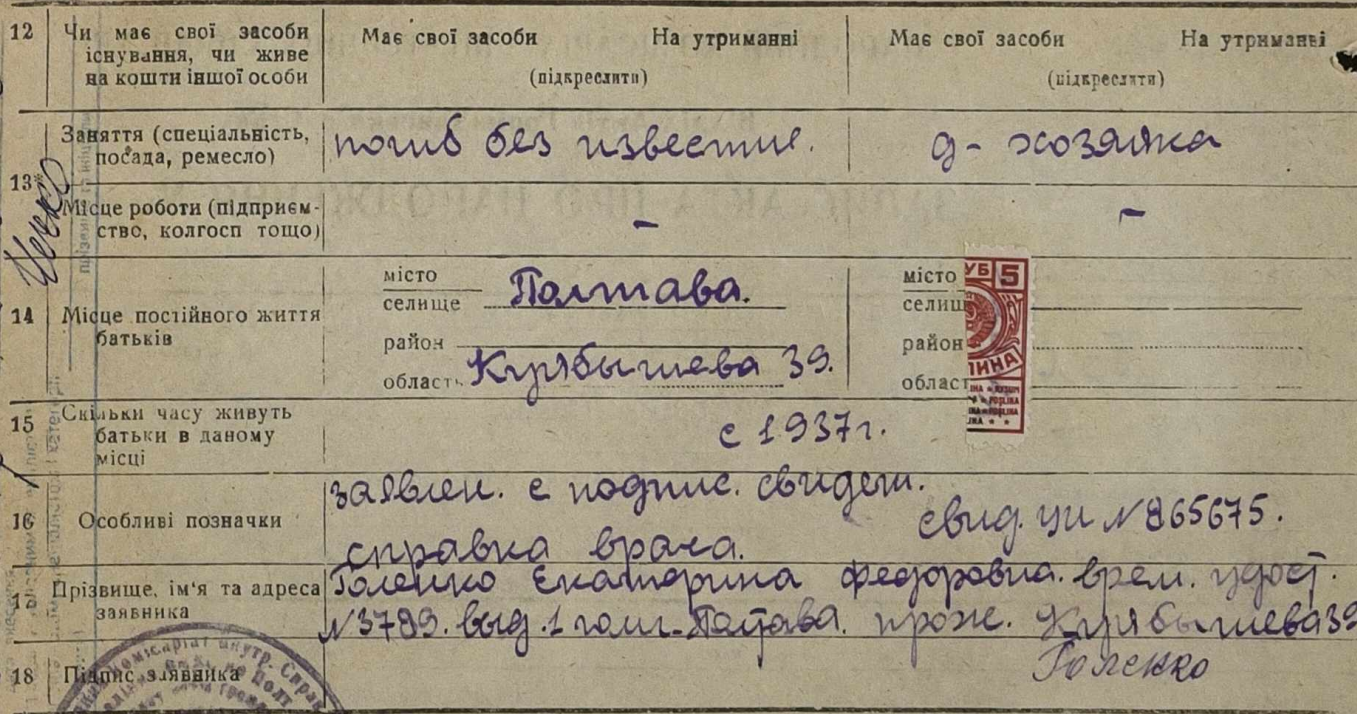 12 Чи має свої засоби існування, чи живе на кошти іншої особи
Має свої засоби На утриманні
(підкреслити)
Має свої засоби На утриманні
(підкреслити)
13
Заняття (спеціальність, посада, ремесло)
погиб без известие.
д- хозяйка
Місце роботи (підприєм-
ство, колгосп тощо)
-
-
14 Місце постійного життя
батьків
місто
селище Полтава.
район
область Куйбышева 39.
місто
селищ
район
област
УБ 5
ЛИНА
15 Скільки часу живуть
батьки в даному
місці
с 1937г.
16 Особливі позначки
заявлен. с подпис. свидет.
справка врача.
свид. №865675.
17 Прізвище, ім'я та адреса
заявника
Голенко Екатерина Федоровна. врем. удост.
№3789. выд. 1 Полтава. прож. Куйбышева 39
18 Підпис заявника
Голенко
комісаріат внутр. Справ